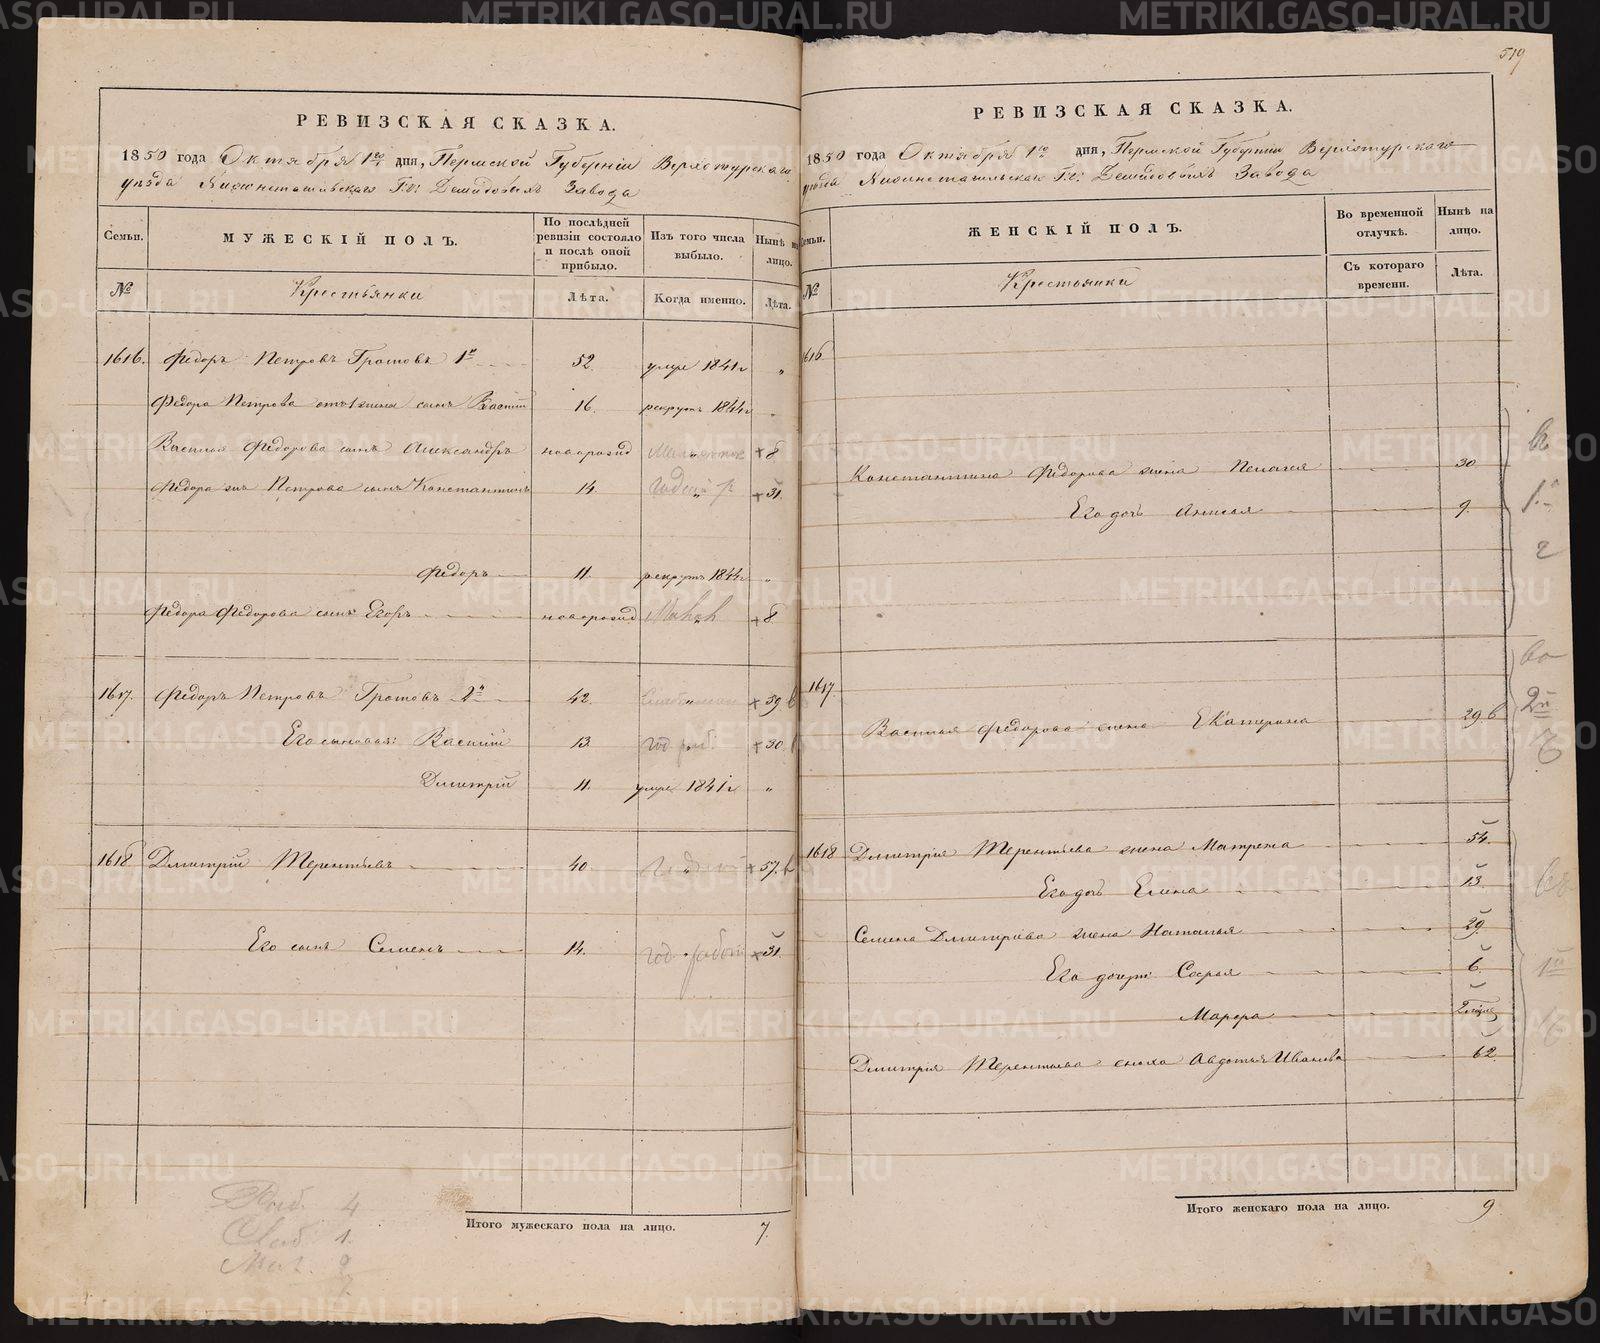 519
РЕВИЗСКАЯ СКАЗКА.
1850 года Октября 1го дня, Пермской Губерніи Верхотурскаго
уѣзда Нижнетагильскаго Г.г. Демидовыхъ Завода
Семьи. МУЖЕСКІЙ ПОЛЪ. По послѣдней ревизіи состояло и послѣ оной прибыло. Изъ того числа выбыло. Нынѣ на лицо.
№ Крестьянки Лѣта. Когда именно. Лѣта.
1616. Федоръ Петровъ Громовъ 1й 52. умре 1841г "
Федора Петрова сынъ Василій 16. рекрутъ 1844г
Василья Федорова сынъ Александръ новорожд + 8
Федора Петрова сынъ Константинъ 14. + 31.
Федоръ 11. рекрутъ 1844г "
Федора Федорова сынъ Егоръ новорожд + 8
1617. Федоръ Петровъ Громовъ 2й 42. + 59
Его сыновья: Василій 13. год. раб. + 30
Дмитрій 11. умре 1841г "
1618 Дмитрій Терентьевъ 40. + 57.
Его сынъ Семенъ 14. год. работ + 31.
Итого мужескаго пола на лицо. 7.
Раб. 4
Слаб. 1.
Мал. 2
7
РЕВИЗСКАЯ СКАЗКА.
1850 года Октября 1го дня, Пермской Губерніи Верхотурскаго
уѣзда Нижнетагильскаго Г.г. Демидовыхъ Завода
Семьи. ЖЕНСКІЙ ПОЛЪ. Во временной отлучкѣ. Нынѣ на лицо.
№ Крестьянки Съ котораго времени. Лѣта.
1616
Константина Федорова жена Пелагея 30
Его дочь Анисья 9.
1617
Василья Федорова жена Екатерина 29
1618 Дмитрія Терентьева жена Матрена 54.
Его дочь Елена 13.
Семена Дмитріева жена Наталья 29.
Его дочери Софья 6.
Марфа
Дмитрія Терентьева сноха Авдотья Иванова 62
Итого женскаго пола на лицо. 9
METRIKI.GASO-URAL.RU